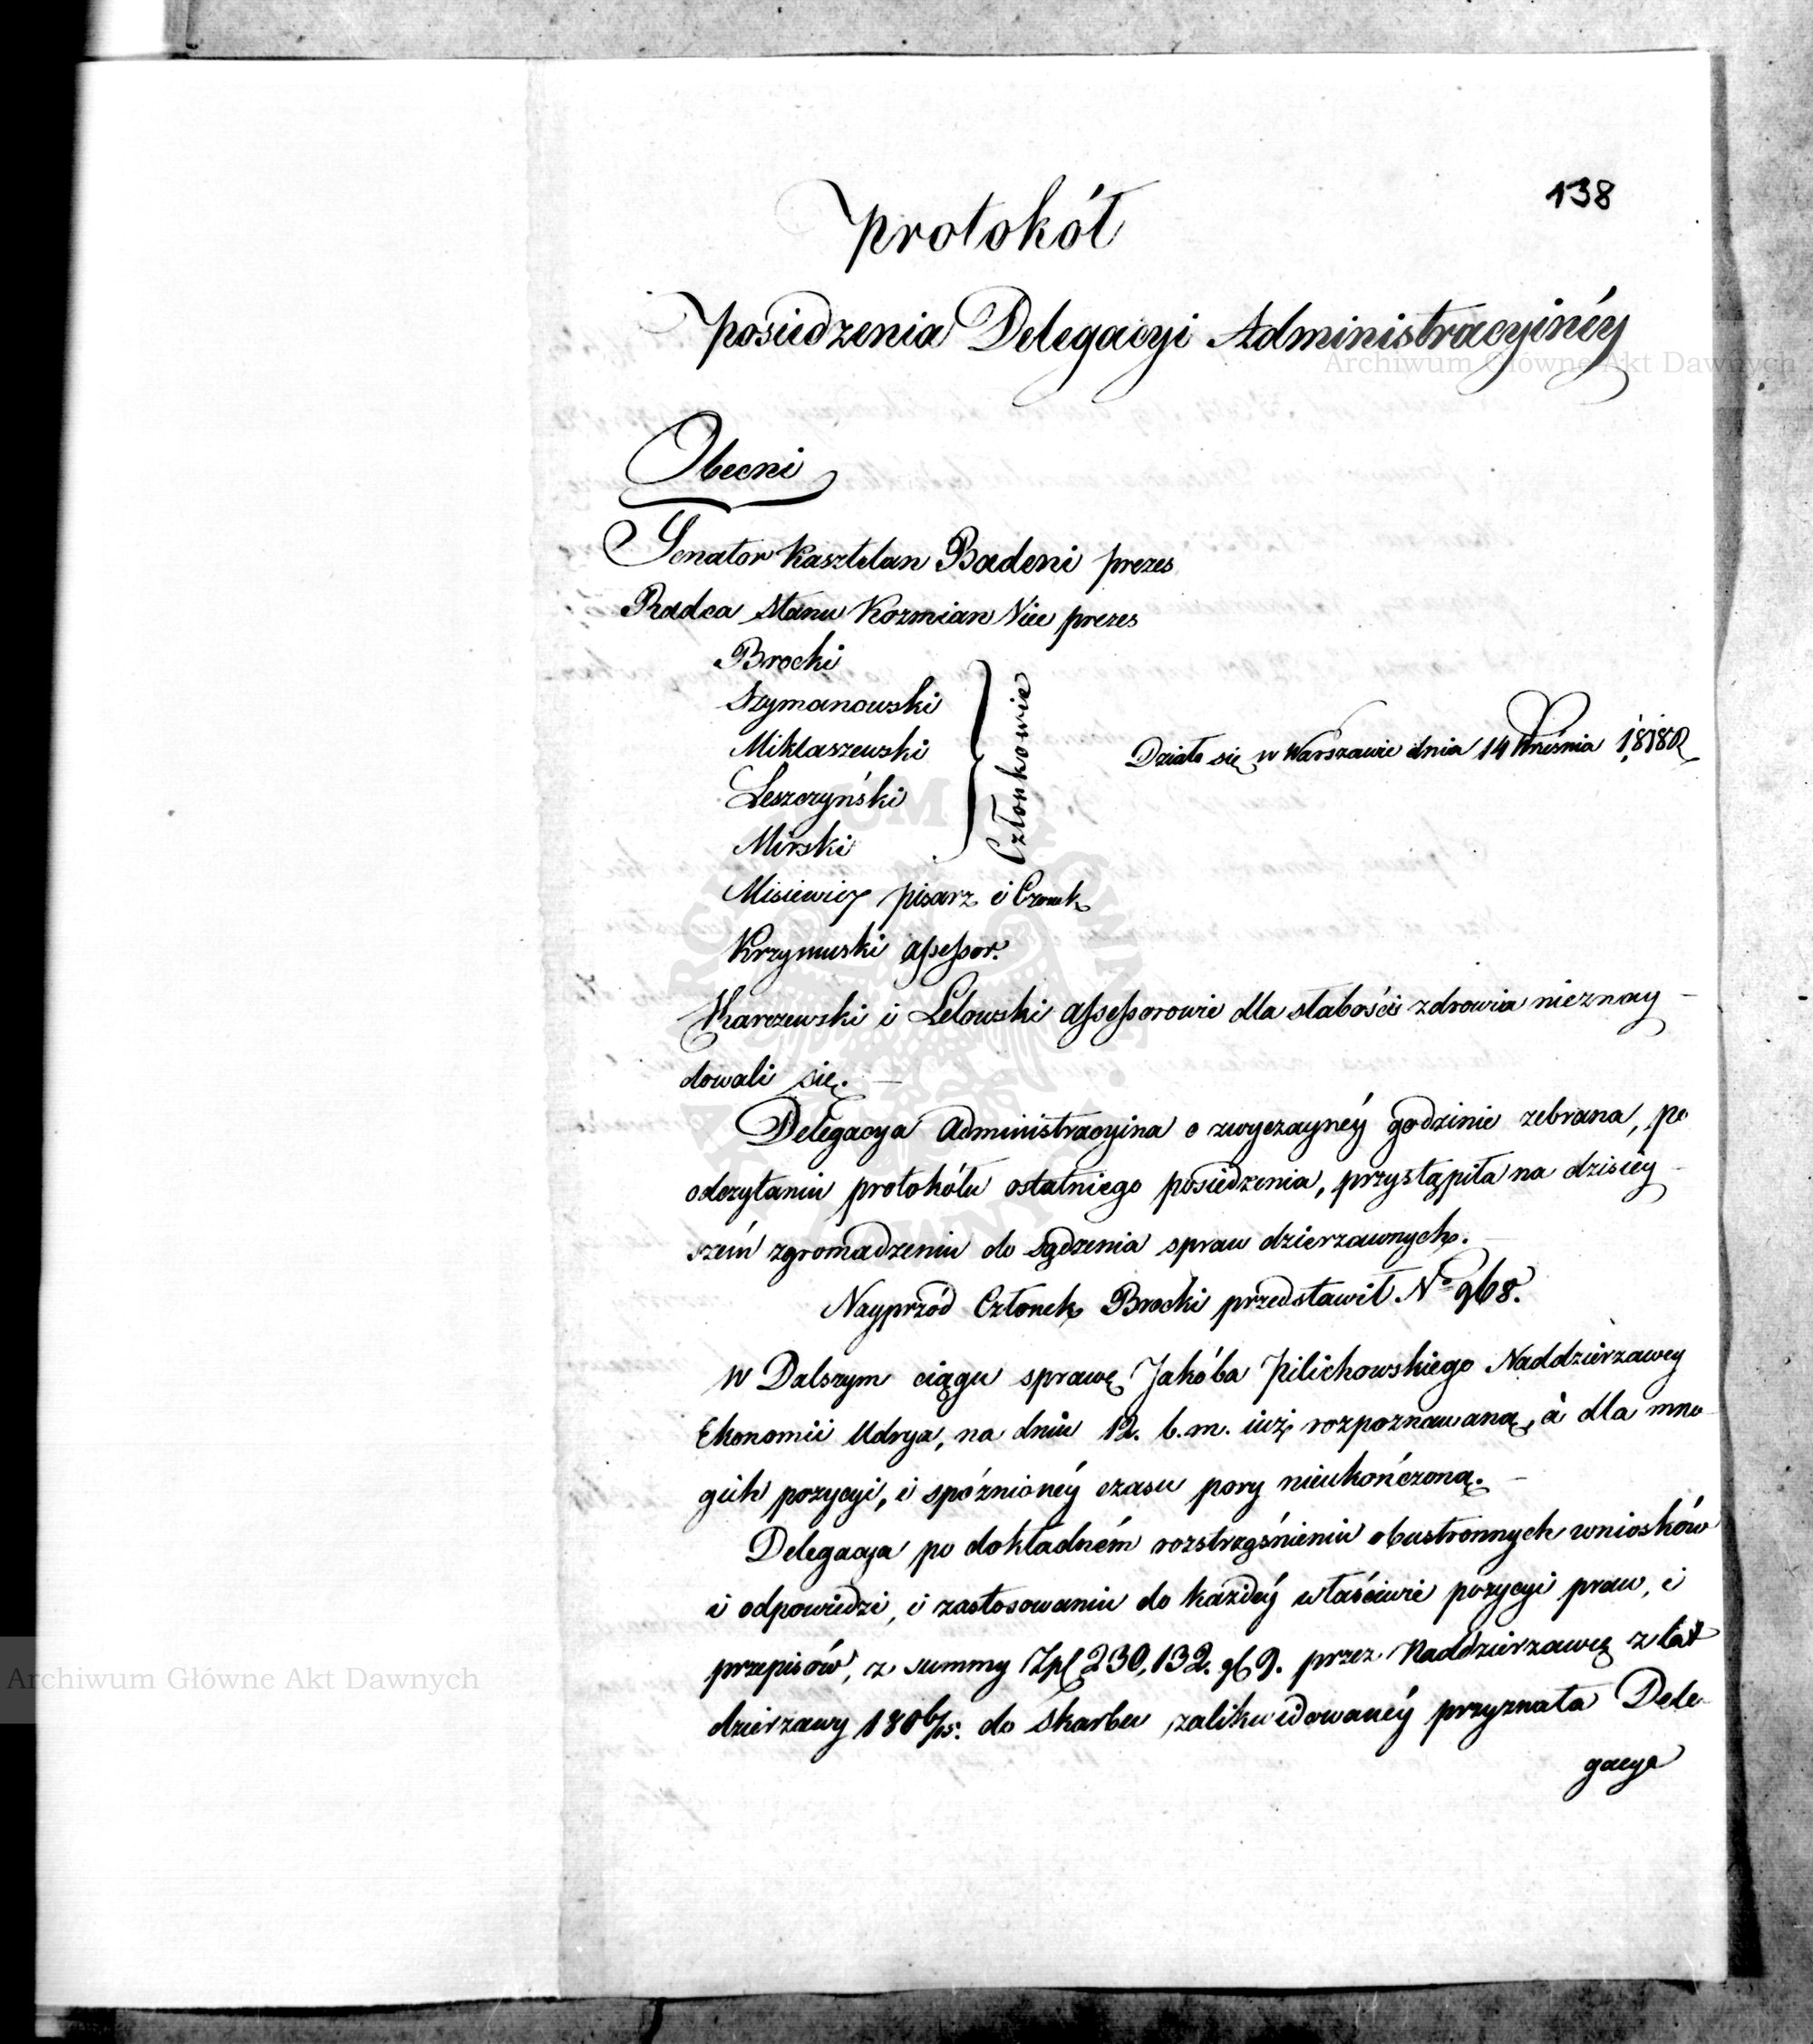 138
Protokół
Posiedzenia Delegacyi Administracyinéy
Obecni
Senator Kasztelan Badeni prezes
Radca Stanu Kozmian Vice prezes
Brocki
Szymanowski
Miklaszewski
Leszczyński
Mirski
Członkowie
Działo się w Warszawie dnia 14 Września 1818 R
Misiewicz pisarz i Czonek
Krzymuski assessor.
Karczewski i Lelowski assessorowie dla słabości zdrowia nieznay
dowali się.
Delegacya Administracyina o zwyczaynéy godzinie zebrana, po
odczytaniu protokółu ostatniego posiedzenia, przystąpiła na dzisiéy
szém zgromadzeniu do sądzenia spraw dzierzawnych.
Nayprzód Członek Brocki przedstawił No 968.
W Dalszym ciągu sprawę Jakóba Pilichowskiego Naddzierzawcy
Ekonomii Udrya, na dniu 12. b.m. iuż rozpoznawaną, à dla mno
gich pozycyi, i spóźnionéy czasu pory nieukończoną.
Delegacya po dokładném rozstrząśnieniu obustronnych wniosków
i odpowiedzi, i zastosowaniu do każdéy właściwie pozycyi praw, i
przepisów, z summy Zpl 230,132. gl 9. przez Naddzierzawcę z lat
dzierzawy 1806/15. do Skarbu zalikwidowanéy przyznała Dele
gacya
Archiwum Główne Akt Dawnych
Archiwum Główne Akt Dawnych